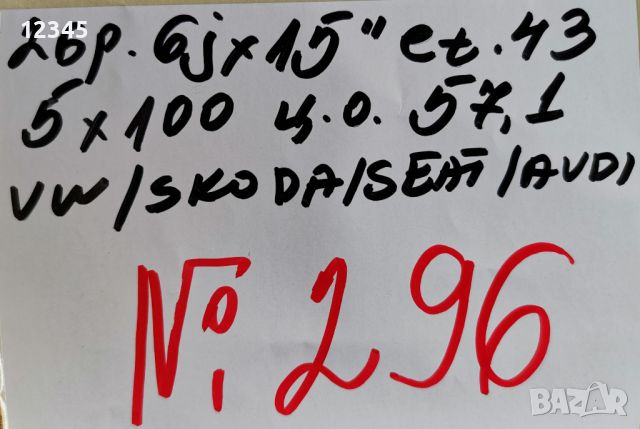 12345
2бр. 6jx15" et.43
5x100 ц.о. 57,1
VW/SKODA/SEAT/AUDI
№ 296
BAZAR